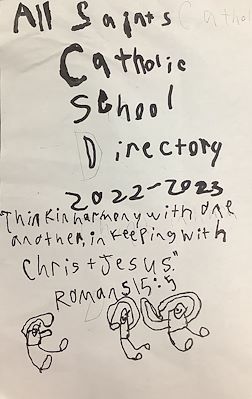 All Saints Catho
Catholic
School
Directory
2022-2023
"Think in harmony with one
another, in keeping with
Christ Jesus."
Romans 15:5